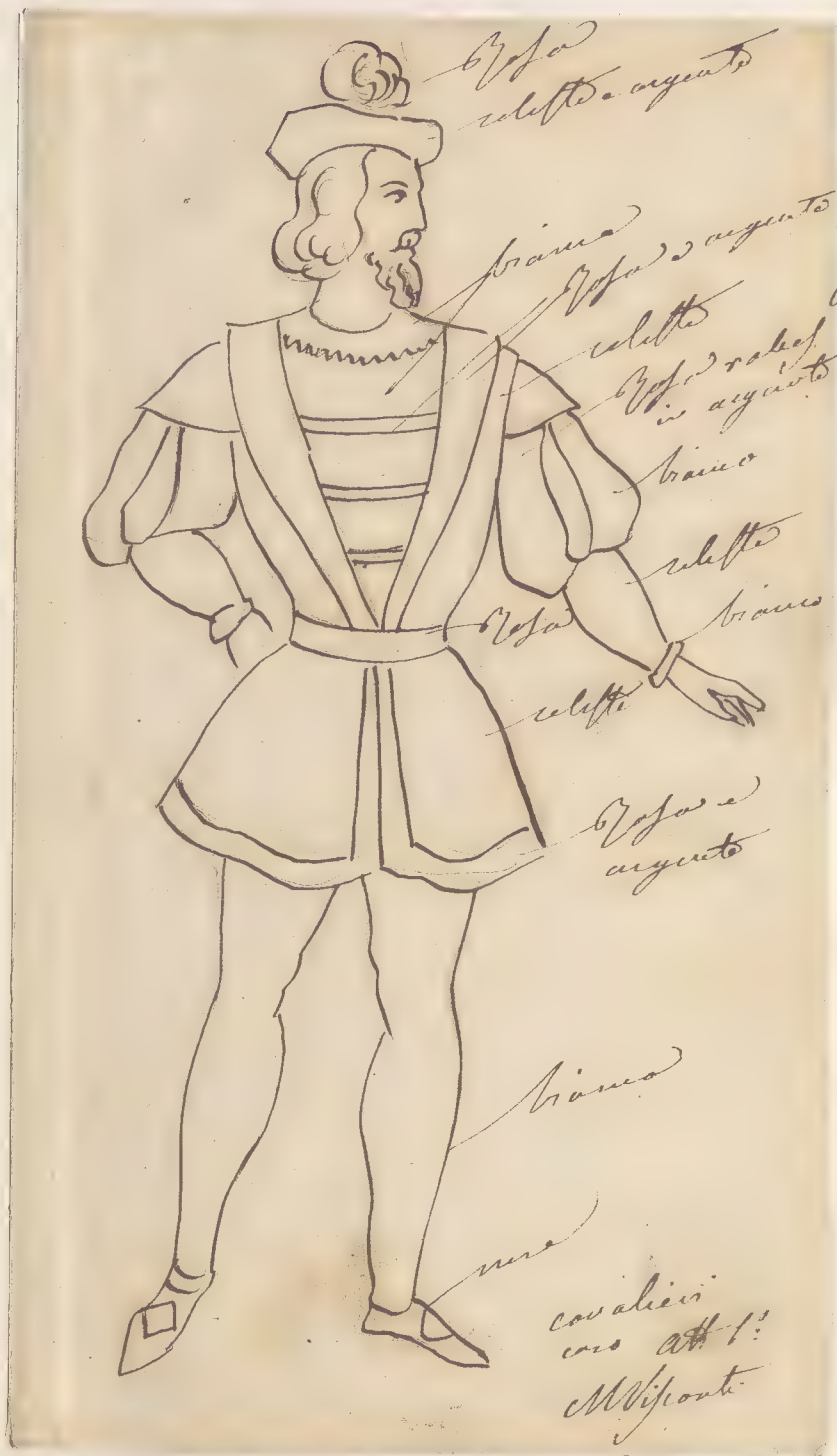 Rosa
celeste e argento
bianco
Rosa e argento
celeste
Rosa
in argento
bianco
celeste
bianco
Rosa
celeste
Rosa e
argento
bianco
nere
cavalieri
coro att. 1º
M Visconti